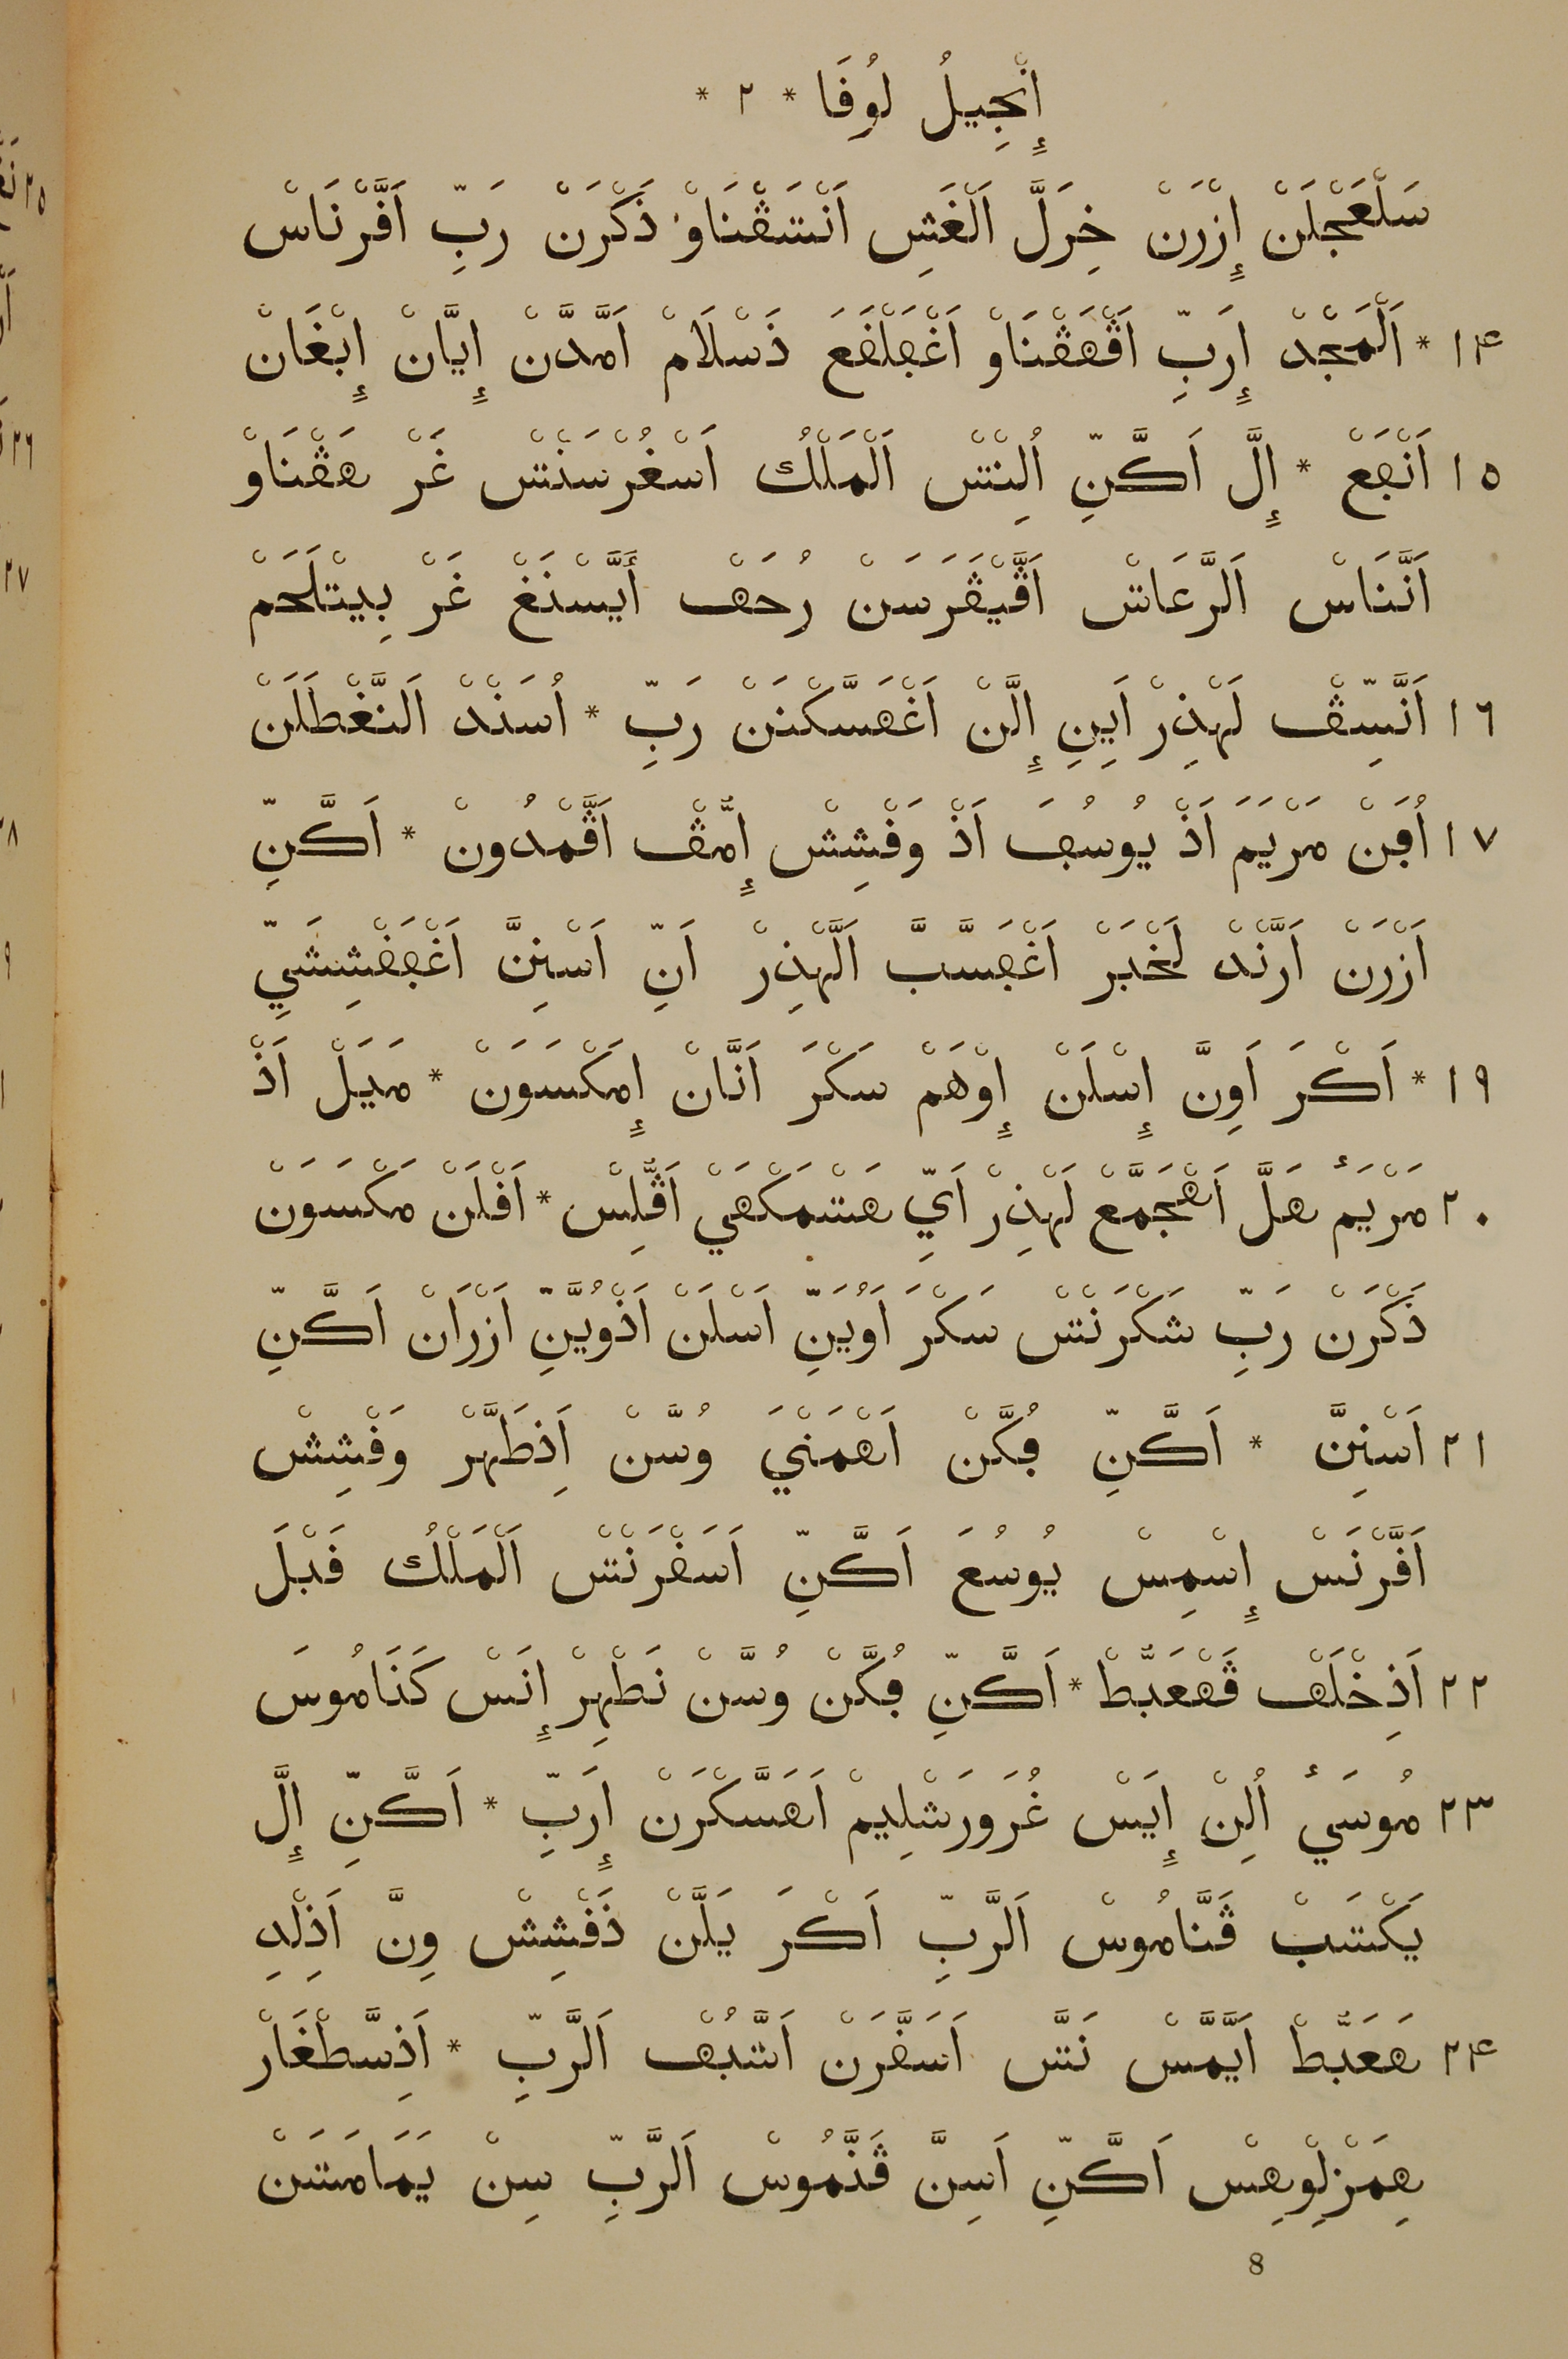 إِنْجِيلُ لُوفَا * ٢ *
سَلْعَجْلَنْ إِزْرَنْ خِرَلَّ اَلْغَشِ اَنْتَڤْنَاوْ ذَكْرَنْ رَبِّ اَفَّرْنَاسْ
١٤ * اَلْمَجْدْ إِرَبِّ اَڤْهَڤْنَاوْ اَغْهَلْفَعَ ذَسْلَامْ اَمَّدَّنْ إِيَّانْ إِبْغَانْ
١٥ اَنْهَعْ * إِلَّ اَكَّنِّ اُلِنْتْسْ اَلْمَلْكْ اَسْغُرْسَنْتْسْ غَرْ هَڤْنَاوْ
اَنَّنَاسْ اَلرَّعَاتْسْ اَڤَّيْڤَرَسَنْ رُحَهْ اَيَّسْنَغْ غَرْ بِيْتْلَحَمْ
١٦ اَنَّسِّڤْ لَهْذِرْ اَيِنِ إِلَّنْ اَغْهَسَّكْنَنْ رَبِّ * اُسَنْدْ اَلنَّغْطَلَنْ
١٧ اُفَنْ مَرْيَمَ اَذْ يُوسُفَ اَذْ وَفْشِشْ إِمُّڤْ اَڤَّمْدُونْ * اَكَّنِّ
اَزْرَنْ اَرَّنْدْ لَخْبَرْ اَغْهَسَّبَّ اَلَّهْذِرْ اَنِّ اَسْنِنَّ اَغْهَفْشِشَيِّ
١٩ * اَكْرَ اَوِنَّ إِسْلَنْ إِوْهَمْ سَكْرَ اَنَّانْ إِمَكْسَوَنْ * مَيَلْ اَذْ
٢٠ مَرْيَمْ هَلَّ اَهْجَمَّعْ لَهْذِرْ اَيِّ هَتْمَكْهَيْ اَڤُّلِسْ * اَفْلَنْ مَكْسَوَنْ
ذَكْرَنْ رَبِّ شَكْرَنْتْسْ سَكْرَ اَوُيَنِّ اَسْلَنْ اَذْوُيَّنِّ اَزْرَانْ اَكَّنِّ
٢١ اَسْنِنَّ * اَكَّنِّ فُكَّنْ اَهْمَنْيَ وُسَّنْ اَذِطَهَّرْ وَفْشِشْ
اَفَّرْنَسْ إِسْمِسْ يُوسُعَ اَكَّنِّ اَسَفْرَنْتْسْ اَلْمَلْكْ فَبْلَ
٢٢ اَذِخْلَهْ ڤَهْعَبُّطْ * اَكَّنِّ فُكَّنْ وُسَّنْ نَطْهِرْ إِنَسْ كَنَامُوسَ
٢٣ مُوسَيٰ اُلِنْ إِيَسْ غُرَوَرَشْلِيمْ اَهَسَّكْرَنْ إِرَبِّ * اَكَّنِّ إِلَّ
يَكْتَبْ ڤَنَّامُوسْ اَلرَّبِّ اَكْرَ يَلَّنْ ذَفْشِشْ وِنَّ اَذِلْدِ
٢٤ هَعَبُّطْ اَيَّمَّسْ نَتَّسْ اَسَفَّرَنْ اَتَّبُهْ اَلرَّبِّ * اَذِسَّطْغَارْ
هِمَزْلِوِهِسْ اَكَّنِّ اَسِنَّ ڤَنَّمُوسْ اَلرَّبِّ سِنْ يَمَامَتَنْ
8